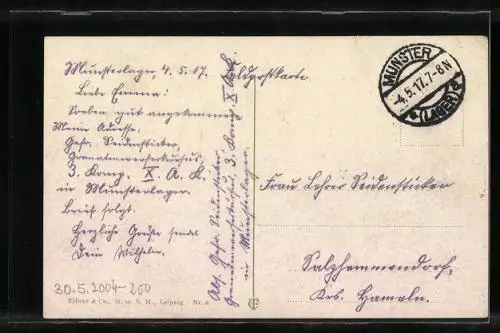 Munsterlager 4.5.17.
Liebe Emma!
Soeben gut angekommen
Meine Adresse.
Gefr. Seidensticker,
Granatwerferkursus,
3. Komp. X. A. K.
in Munsterlager.
Brief folgt.
Herzliche Grüße sendet
Dein Wilhelm.
Feldpostkarte
Abs. Gefr. Seidensticker
Granatwerferkursus, 3. Komp. X A.K.
in Munsterlager
MUNSTER
-4.5.17.7-8N
(LAGER)
Frau Lehrer Seidensticker
Salzhemmendorf,
Krs. Hameln.
30.5.2004-200
Trinks & Co., G. m. b. H., Leipzig. Nr.